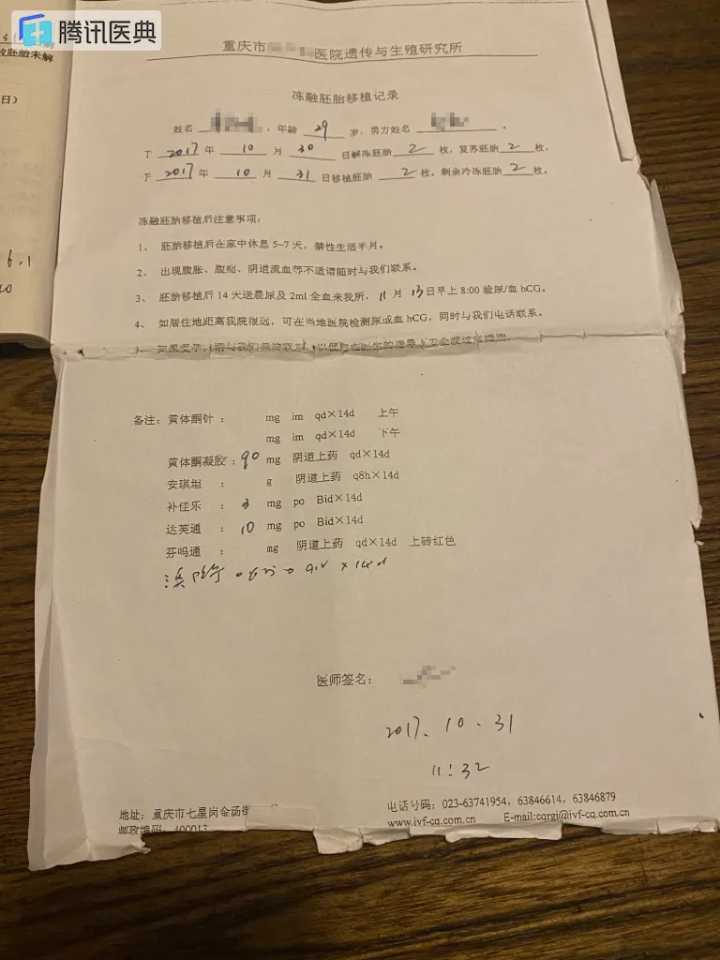 腾讯医典
效胚胎未解
日)
6.1
重庆市 医院遗传与生殖研究所
冻融胚胎移植记录
姓名 ，年龄 29 岁，男方姓名 。
于 2017 年 10 月 30 日解冻胚胎 2 枚，复苏胚胎 2 枚。
于 2017 年 10 月 31 日移植胚胎 2 枚，剩余冷冻胚胎 2 枚。
冻融胚胎移植后注意事项：
1、 胚胎移植后在家中休息 5~7 天，禁性生活半月。
2、 出现腹胀、腹痛、阴道流血等不适请随时与我们联系。
3、 胚胎移植后 14 天送晨尿及 2ml 全血来我所，11 月 13 日早上 8:00 验尿/血 hCG。
4、 如居住地距离我院很远，可在当地医院检测尿或血 hCG，同时与我们电话联系。
备注：黄体酮针 ： mg im qd×14d 上午
mg im qd×14d 下午
黄体酮凝胶：90 mg 阴道上药 qd×14d
安琪坦 ： g 阴道上药 q8h×14d
补佳乐 ： 3 mg po Bid×14d
达芙通 ： 10 mg po Bid×14d
芬吗通 ： mg 阴道上药 qd×14d 上砖红色
×14d
医师签名：
2017. 10. 31
11:32
地址：重庆市七星岗金汤街
邮政编码：400013
电话号码：023-63741954，63846614，63846879
www.ivf-cq.com.cn E-mail:cqrgi@ivf-cq.com.cn